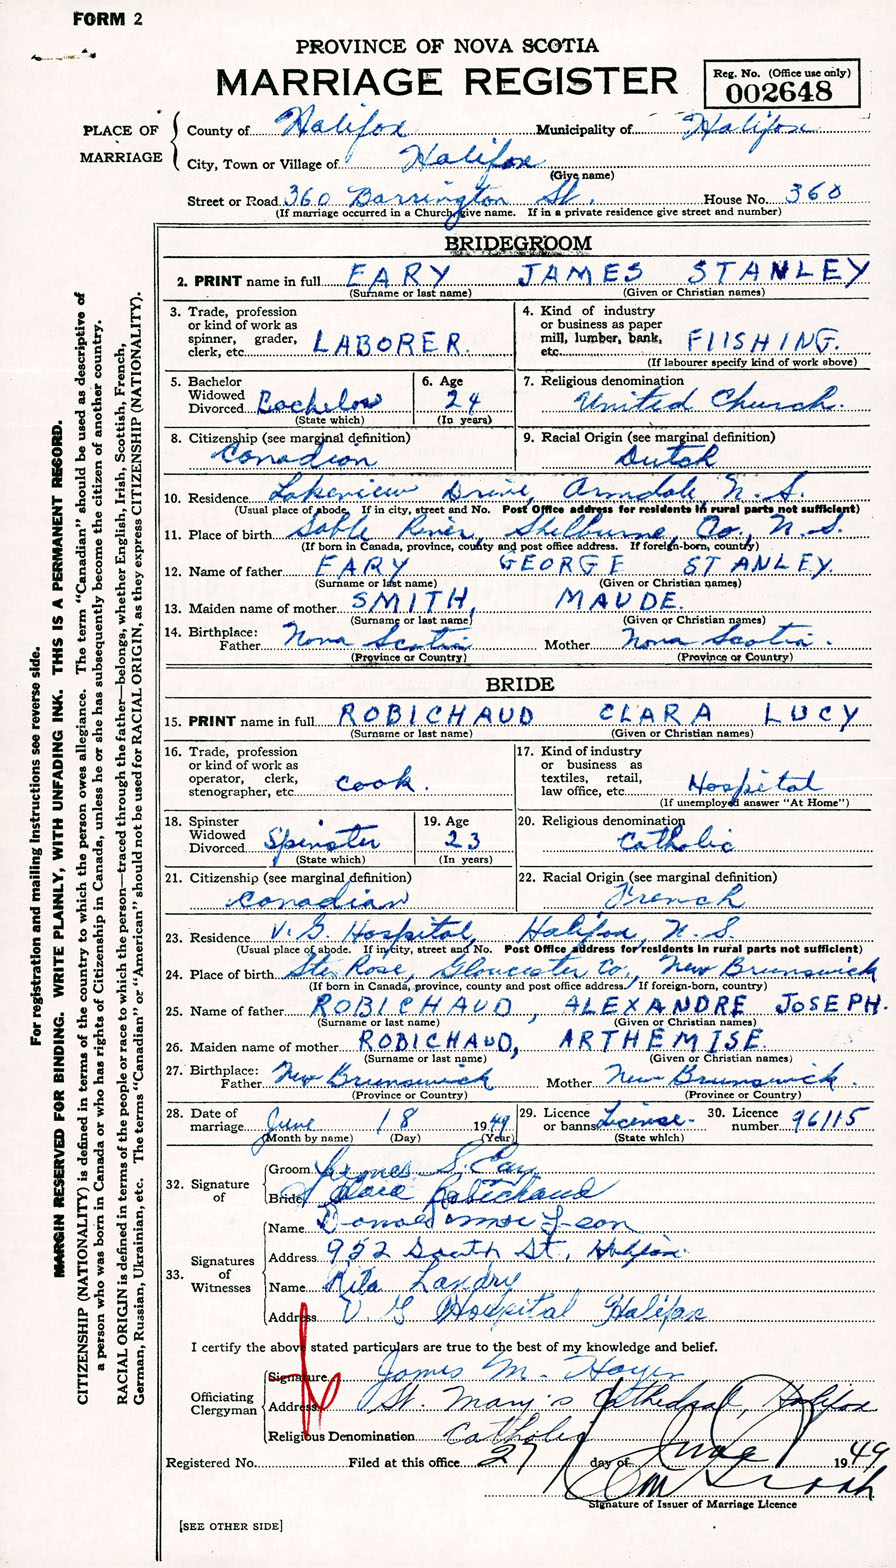 FORM 2
PROVINCE OF NOVA SCOTIA
MARRIAGE REGISTER
Reg. No. (Office use only)
002648
PLACE OF MARRIAGE
County of Halifax Municipality of Halifax
City, Town or Village of Halifax
(Give name)
Street or Road 360 Barrington St. House No. 360
(If marriage occurred in a Church, give name. If in a private residence give street and number)
BRIDEGROOM
2. PRINT name in full EARY JAMES STANLEY
(Surname or last name) (Given or Christian names)
3. Trade, profession or kind of work as spinner, grader, clerk, etc. LABORER.
4. Kind of industry or business as paper mill, lumber, bank, etc. FIISHING.
(If labourer specify kind of work above)
5. Bachelor Widowed Divorced Bachelor
(State which)
6. Age 24
(In years)
7. Religious denomination United Church.
8. Citizenship (see marginal definition) Canadian
9. Racial Origin (see marginal definition) Dutch
10. Residence Lakeview Drive, Armdale, N. S.
(Usual place of abode. If in city, street and No. Post Office address for residents in rural parts not sufficient)
11. Place of birth Sable River, Shelburne, Co., N. S.
(If born in Canada, province, county and post office address. If foreign-born, country)
12. Name of father EARY GEORGE STANLEY.
(Surname or last name) (Given or Christian names)
13. Maiden name of mother SMITH, MAUDE.
(Surname or last name) (Given or Christian names)
14. Birthplace: Father Nova Scotia Mother Nova Scotia.
(Province or Country) (Province or Country)
BRIDE
15. PRINT name in full ROBICHAUD CLARA LUCY
(Surname or last name) (Given or Christian names)
16. Trade, profession or kind of work as operator, clerk, stenographer, etc. cook.
17. Kind of industry or business as textiles, retail, law office, etc. Hospital
(If unemployed answer "At Home")
18. Spinster Widowed Divorced Spinster
(State which)
19. Age 23
(In years)
20. Religious denomination Catholic
21. Citizenship (see marginal definition) Canadian
22. Racial Origin (see marginal definition) French
23. Residence V. G. Hospital, Halifax, N. S.
(Usual place of abode. If in city, street and No. Post Office address for residents in rural parts not sufficient)
24. Place of birth Ste Rose, Gloucester Co., New Brunswick
(If born in Canada, province, county and post office address. If foreign-born, country)
25. Name of father ROBICHAUD, ALEXANDRE JOSEPH.
(Surname or last name) (Given or Christian names)
26. Maiden name of mother ROBICHAUD, ARTHEMISE.
(Surname or last name) (Given or Christian names)
27. Birthplace: Father New Brunswick Mother New Brunswick.
(Province or Country) (Province or Country)
28. Date of marriage June 18 1949
(Month by name) (Day) (Year)
29. Licence or banns License.
(State which)
30. Licence number 96115
32. Signature of
Groom James S. Eary
Bride Clara Robichaud
33. Signatures of Witnesses
Name Donald
Address 952 South St, Halifax.
Name Rita Landry
Address V. G Hospital Halifax
I certify the above stated particulars are true to the best of my knowledge and belief.
Officiating Clergyman
Signature James M. Hayes
Address St. Mary's Cathedral, Halifax
Religious Denomination Catholic
Registered No. Filed at this office 27 day of June 1949
Signature of Issuer of Marriage Licence
[SEE OTHER SIDE]
For registration and mailing instructions see reverse side.
MARGIN RESERVED FOR BINDING. WRITE PLAINLY, WITH UNFADING INK. THIS IS A PERMANENT RECORD.
CITIZENSHIP (NATIONALITY) is defined in terms of the country to which the person owes allegiance. The term "Canadian" should be used as descriptive of
a person who was born in Canada or who has rights of Citizenship in Canada, unless he or she has subsequently become the citizen of another country.
RACIAL ORIGIN is defined in terms of the people or race to which the person—traced through the father—belongs, whether English, Irish, Scottish, French,
German, Russian, Ukrainian, etc. The terms "Canadian" or "American" should not be used for RACIAL ORIGIN, as they express CITIZENSHIP (NATIONALITY).